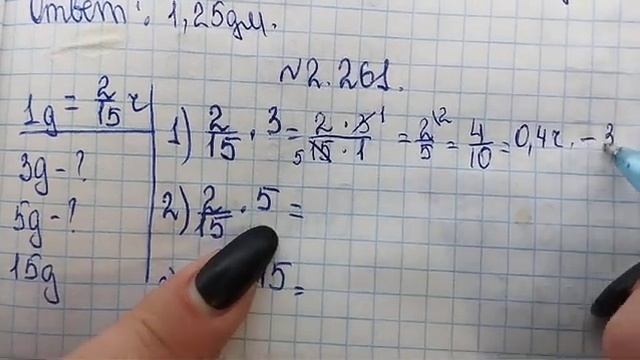 Ответ: 1,25дм.
№2.261.
1д = 2/15 ч
3д - ?
5д - ?
15д
1) 2/15 · 3 = 2 · 3 1 / 5 15 · 1 = 2/5 \2 = 4/10 = 0,4ч. - 3
2) 2/15 · 5 =
15 =